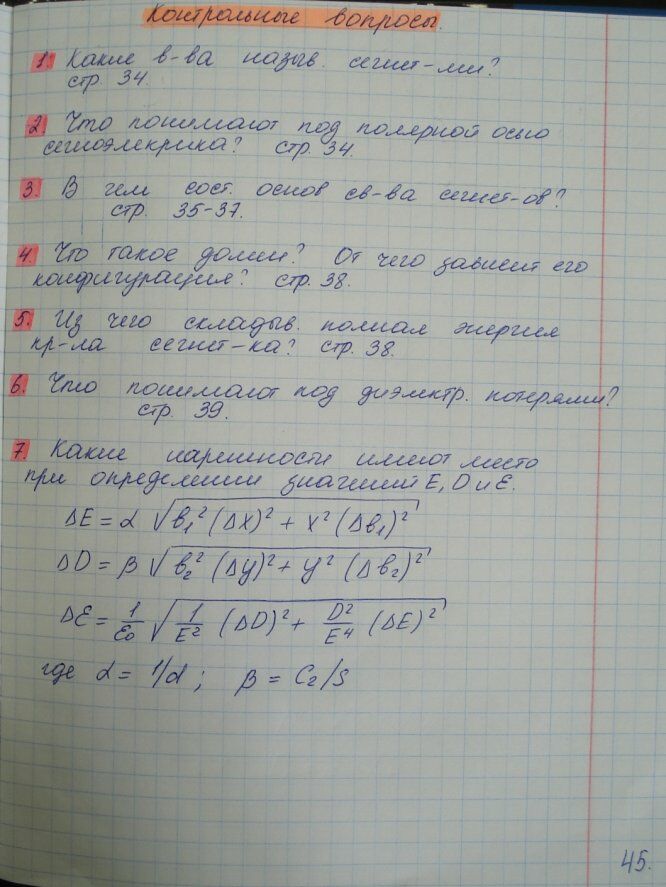 Контрольные вопросы.
1. Какие в-ва назыв. сегнет-ми?
стр. 34.
2. Что понимают под полярной осью
сегноэлекрика? стр. 34.
3. В чем сост. основ св-ва сегнет-ов?
стр. 35-37.
4. Что такое домен? От чего зависит его
конфигурация? стр. 38.
5. Из чего складыв. полная энергия
кр-ла сегнет-ка? стр. 38.
6. Что понимают под диэлектр. потерями?
стр. 39.
7. Какие погрешности имеют место
при определении значений E, D и ε.
ΔE = α √(b₁² (Δx)² + x² (Δb₁)²)
ΔD = β √(b₂² (Δy)² + y² (Δb₂)²)
Δε = 1/ε₀ √(1/E² (ΔD)² + D²/E⁴ (ΔE)²)
где α = 1/d ; β = C₂/S
45.